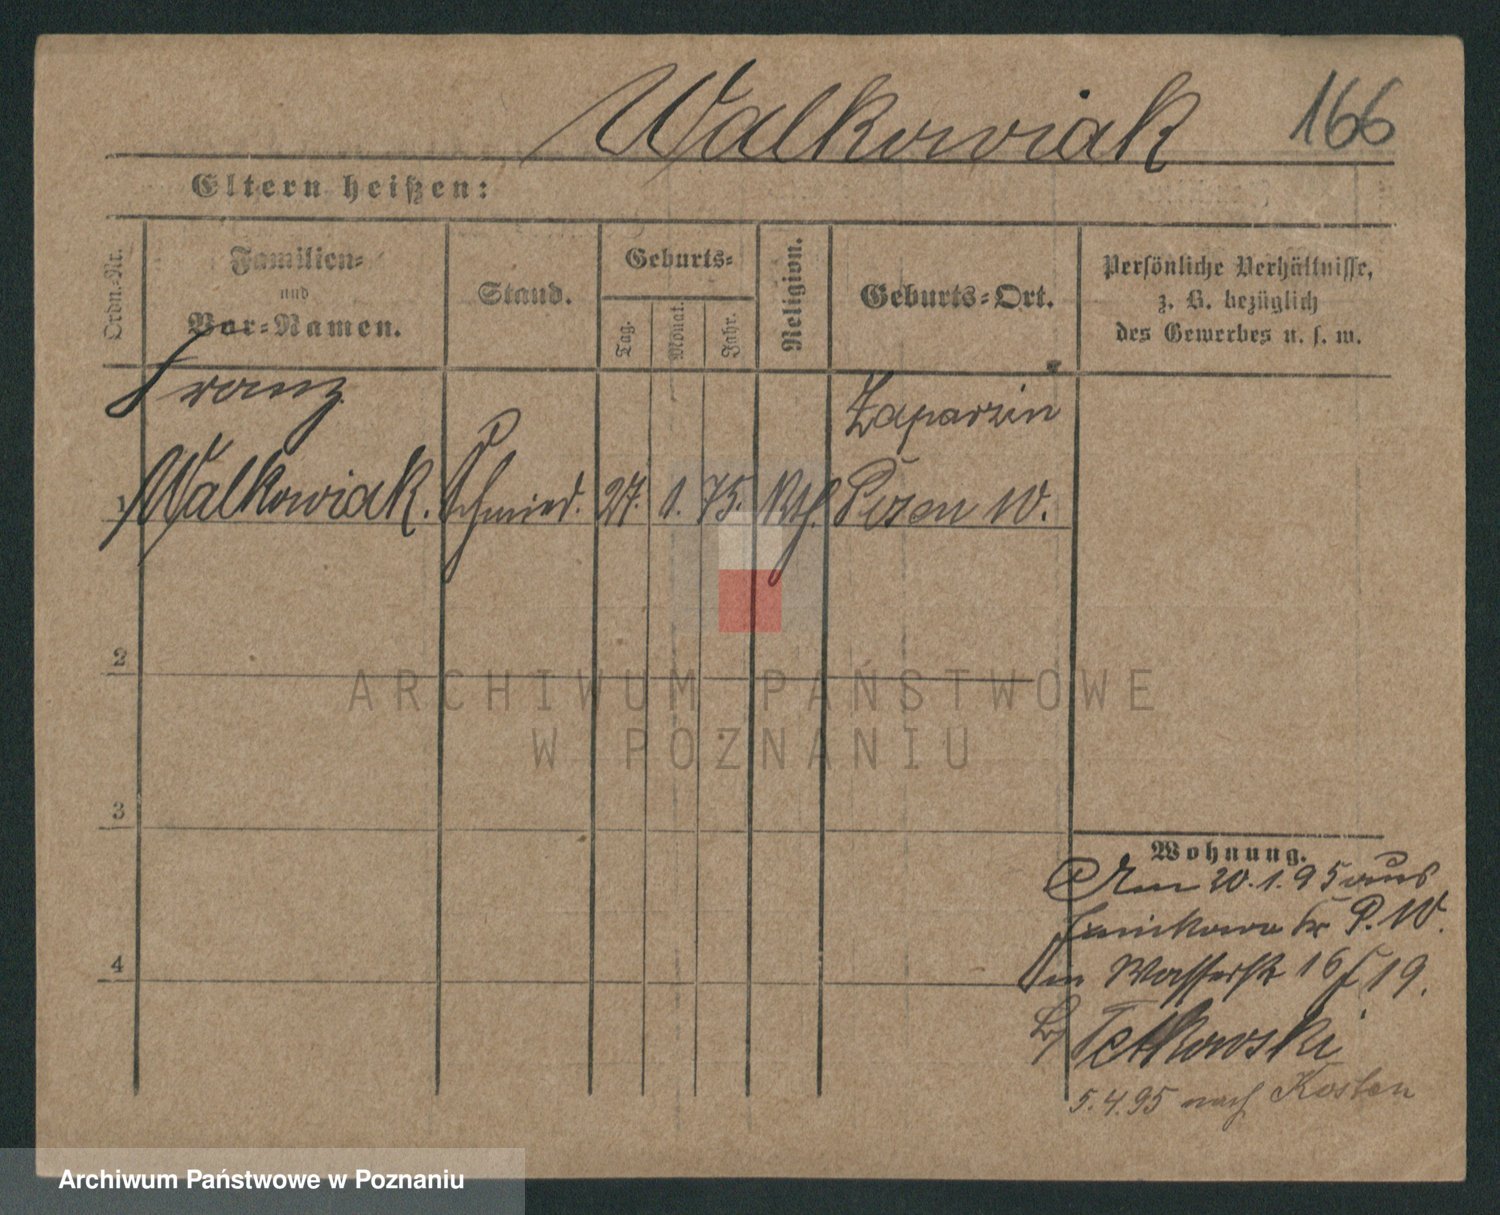 Walkowiak 166
Eltern heißen:
Ordn.-Nr.
Familien-
und
Vor-Namen.
Stand.
Geburts-
Tag.
Monat.
Jahr.
Religion.
Geburts-Ort.
Persönliche Verhältnisse,
z. B. bezüglich
des Gewerbes u. s. w.
Franz
Zaparzin
1 Walkowiak. Schmied. 27. 1. 75. Kth. Posen W.
2
ARCHIWUM PAŃSTWOWE
W POZNANIU
3
Wohnung.
Am 20.1.95 aus
P. W.
4
Wasserstr 16/19.
Tetkowski
5.4.95 nach Kosten
Archiwum Państwowe w Poznaniu